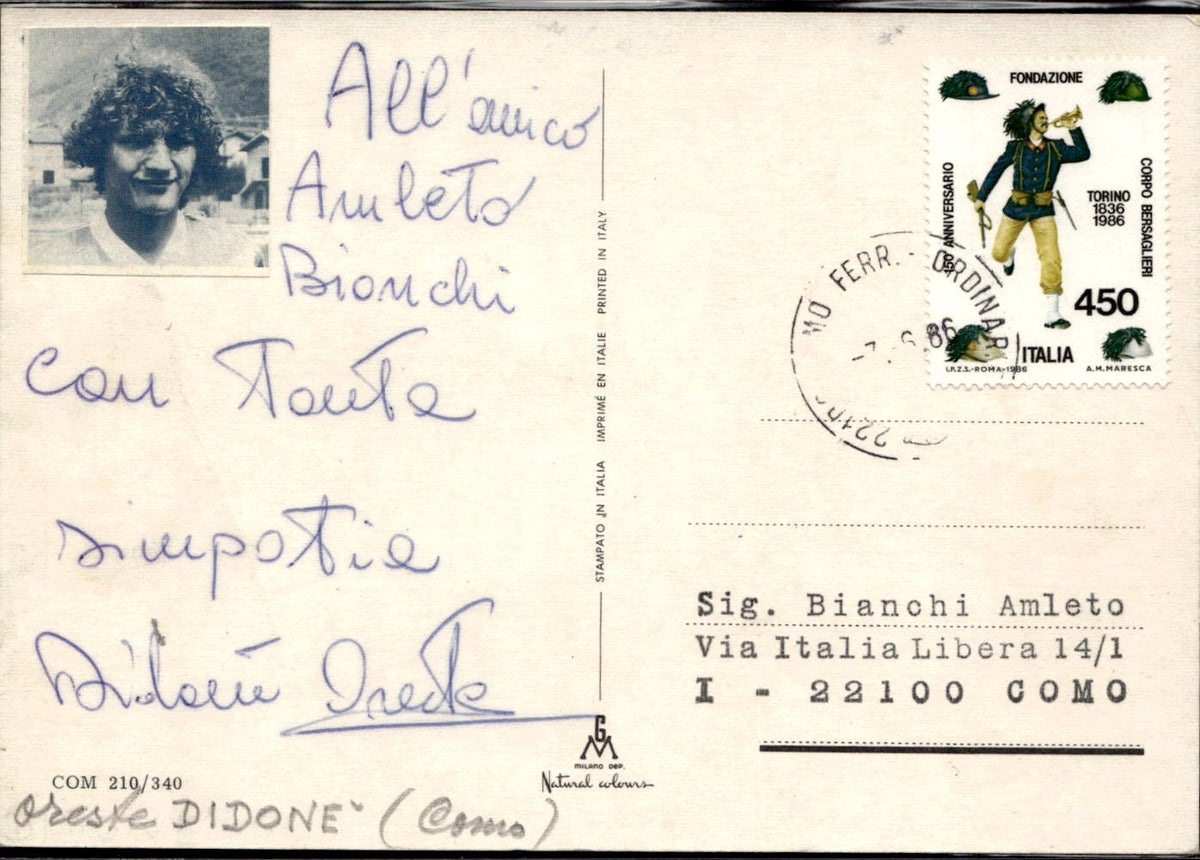 All'amico
Amleto
Bianchi
con Tanta
simpatia
Didonè Oreste
COM 210/340
Oreste DIDONE' (Como)
STAMPATO IN ITALIA IMPRIMÉ EN ITALIE PRINTED IN ITALY
GM
MILANO DEP.
Natural colours
FONDAZIONE
150 ANNIVERSARIO
CORPO BERSAGLIERI
TORINO
1836
1986
450
ITALIA
I.P.Z.S.-ROMA-1986
A.M. MARESCA
MO FERR. - ORDINAR
-7. 6 86
Sig. Bianchi Amleto
Via Italia Libera 14/1
I - 22100 COMO